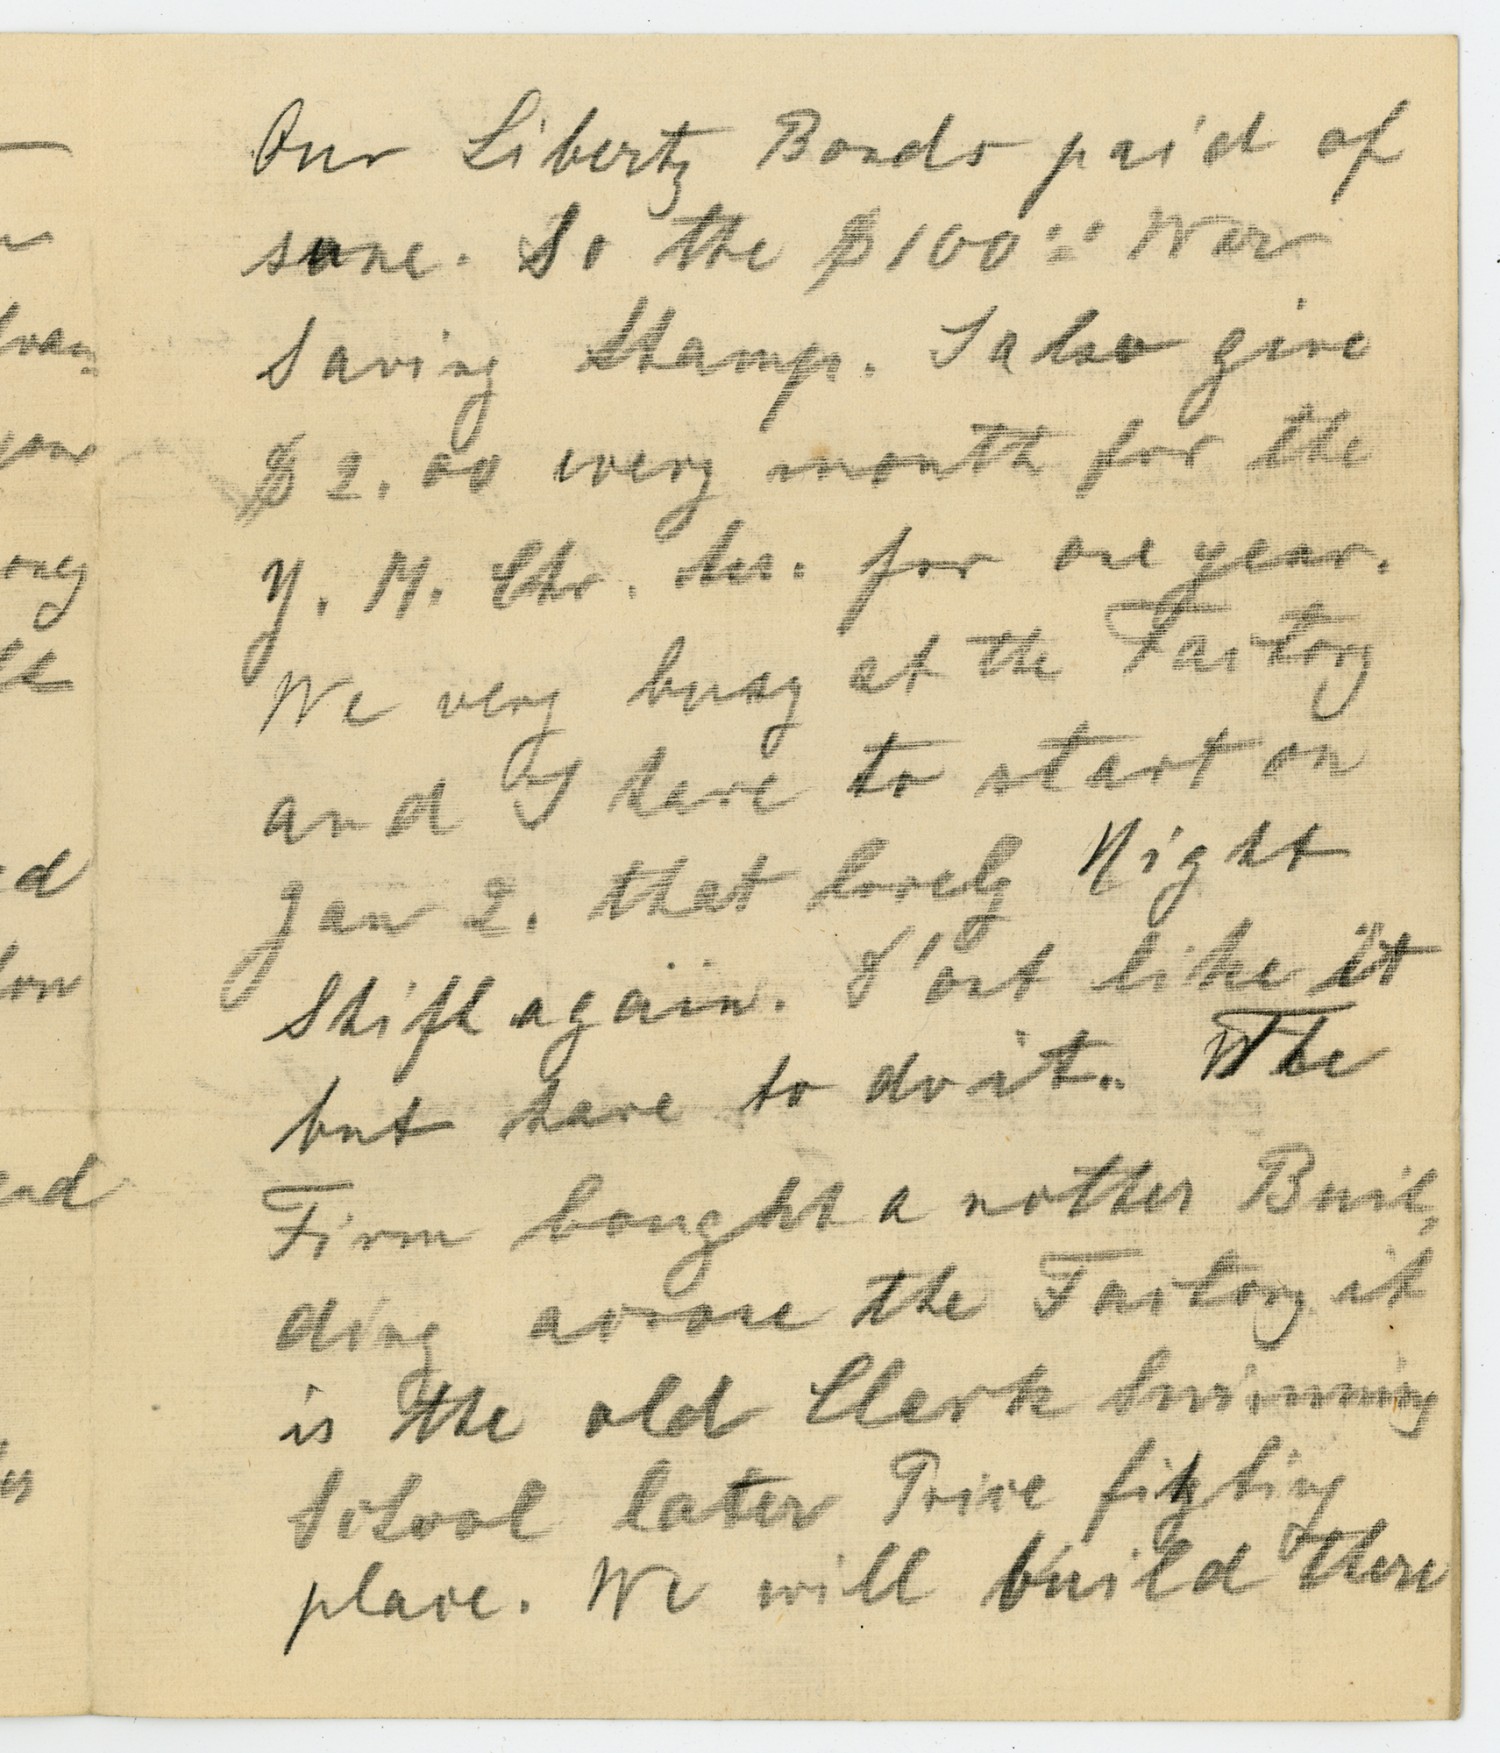 Our Liberty Bonds paid of
sune. So the $100.00 War
Saving Stamps. I also give
$2.00 every month for the
Y. M. Chr. As. for one year.
We very busy at the Factory
and I have to start on
Jan 2. that lovely Night
Shift again. I'ont like it
but have to do it. The
Firm bought another Buil,
ding across the Factory it
is the old Clark Swimming
School later Price fighting
place. We will build there